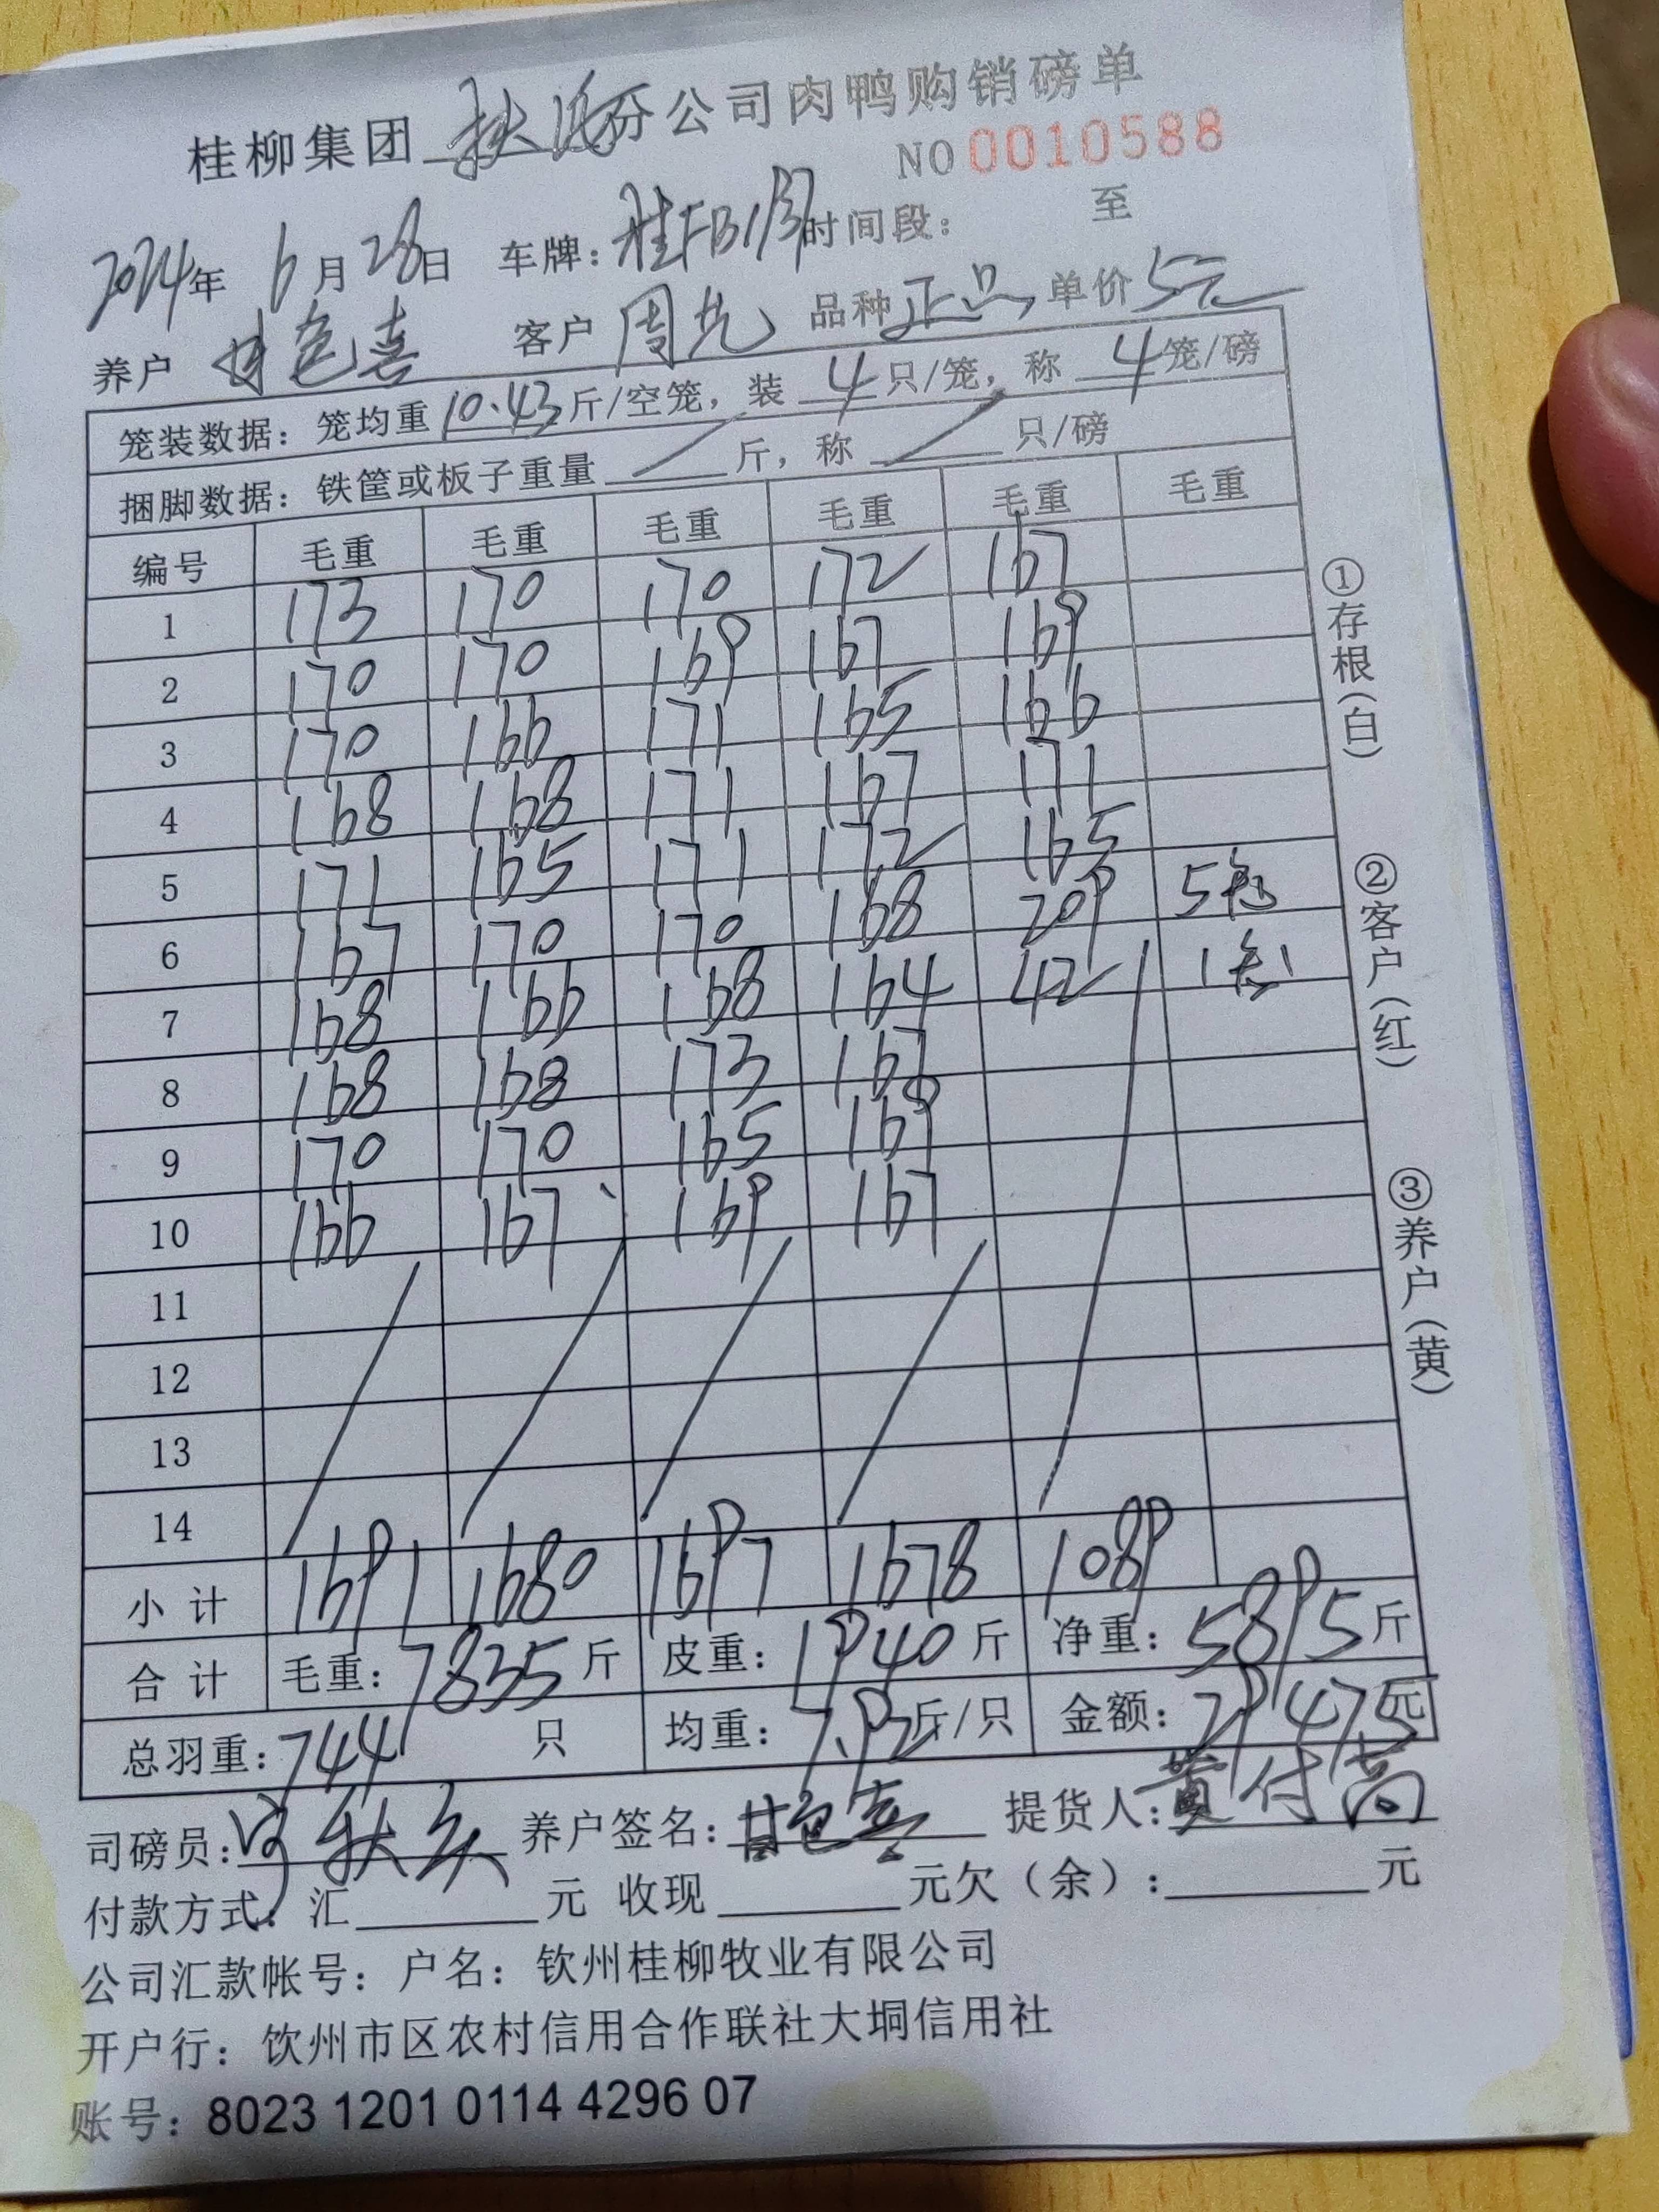 桂柳集团 分公司肉鸭购销磅单
NO 0010588
2024年 6月28日 车牌: 桂FB 时间段: 至
养户 甘色喜 客户 周九 品种 正品 单价 5元
笼装数据: 笼均重 10.43 斤/空笼, 装 4 只/笼, 称 4 笼/磅
捆脚数据: 铁筐或板子重量 / 斤, 称 / 只/磅
编号 毛重 毛重 毛重 毛重 毛重 毛重
1 173 170 170 172 167
2 170 170 169 167 169
3 170 166 171 165 166
4 168 168 171 167 171
5 171 165 171 172 165
6 167 170 170 168 209 5笼
7 168 166 168 164 42 1笼
8 168 168 173 167
9 170 170 165 169
10 166 167 169 167
11
12
13
14
小计 1691 1680 1697 1678 1089
合计 毛重: 7835 斤 皮重: 1940 斤 净重: 5895 斤
总羽重: 744 只 均重: 7.92 斤/只 金额: 29475 元
司磅员: 养户签名: 甘色喜 提货人: 黄付高
付款方式: 汇 元 收现 元欠(余): 元
公司汇款帐号: 户名: 钦州桂柳牧业有限公司
开户行: 钦州市区农村信用合作联社大垌信用社
账号: 8023 1201 0114 4296 07
①存根(白)
②客户(红)
③养户(黄)